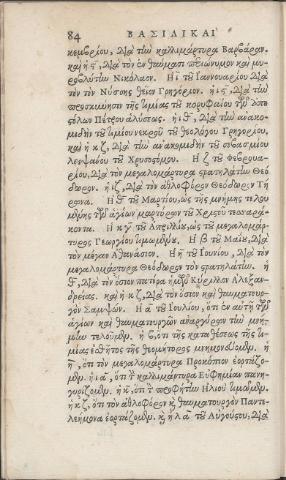 84 ΒΑΣΙΛΙΚΑΙ
κεμβρίου, διὰ τὴν καλλιμάρτυρα Βαρβάραν.
καὶ ἡ ϛ΄, διὰ τὸν ἐν θαύμασι περιώνυμον καὶ μυ-
ροβλύτην Νικόλαον. Η ι τοῦ Ἰαννουαρίου διὰ
τὸν τὸν Νύσσης θεῖον Γρηγόριον. ἡ ιϛ, διὰ τὴν
προσκύνησιν τῆς τιμίας τοῦ κορυφαίου τῶν ἀπο-
στόλων Πέτρου ἁλύσεως. ἡ ιθ, διὰ τὴν ἀνακο-
μιδὴν τοῦ τιμίου νεκροῦ τοῦ θεολόγου Γρηγορίου,
καὶ ἡ κζ, διὰ τὴν ἀνακομιδὴν τοῦ σεβασμίου
λειψάνου τοῦ Χρυσοστόμου. Η ζ τοῦ Φεβρουα-
ρίου, διὰ τὸν μεγαλομάρτυρα στρατηλάτην Θεό-
δωρον. ἡ ιζ, διὰ τὸν ἀθλοφόρον Θεόδωρον Τή
ρωνα. Η θ τοῦ Μαρτίου, ὡς τῆς μνήμης τελου
μένης τῶν ἁγίων μαρτύρων τοῦ Χριστοῦ τεσσαρά-
κοντα. Η κγ τοῦ Ἀπριλίου, ὡς τοῦ μεγαλομάρ-
τυρος Γεωργίου τιμωμένου. Η β τοῦ Μαΐου, διὰ
τὸν μέγαν Ἀθανάσιον. Η η τοῦ Ἰουνίου, διὰ τὸν
μεγαλομάρτυρα Θεόδωρον τὸν στρατηλάτην. ἡ
θ, διὰ τὸν ὅσιον πατέρα ἡμῶν Κύριλλον Ἀλεξαν-
δρείας. καὶ ἡ κζ, διὰ τὸν ὅσιον καὶ θαυματουρ-
γὸν Σαμψών. Η α τοῦ Ἰουλίου, ὅτι ἐν αὐτῇ τῶν
ἁγίων καὶ θαυματουργῶν ἀναργύρων τὴν μνή-
μην τελοῦμεν. ἡ β, ὅτι τῆς καταθέσεως τῆς τι-
μίας ἐσθῆτος τῆς θεομήτορος μνημονεύομεν. ἡ
η, ὅτι τὸν μεγαλομάρτυρα Προκόπιον ἑορτάζο-
μεν. ἡ ια, ὅτι τὴν καλλιμάρτυρα Εὐφημίαν πανη-
γυρίζομεν. ἡ κ, ὅτι τὸν προφήτην Ηλιοῦ τιμῶμεν.
ἡ κζ, ὅτι τὸν ἀθλοφόρον καὶ θαυματουργὸν Παντε-
λεήμονα ἑορτάζομεν. καὶ ἡ λα τοῦ Αὐγούστου, διὰ